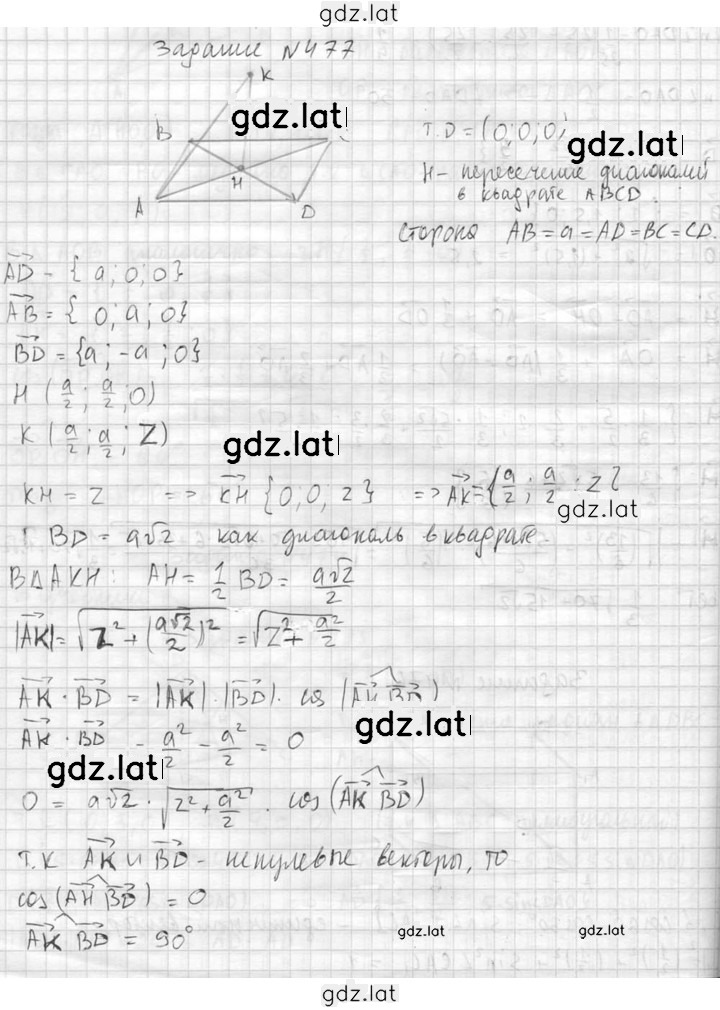 gdz.lat
Задание №477
K
gdz.lat
B
H
A
D
т.D = (0;0;0)
gdz.lat
H - пересечение диагоналей
в квадрате ABCD.
Сторона AB = a = AD = BC = CD.
AD - { a; 0; 0}
AB = { 0; a; 0}
BD = {a; -a; 0}
H (a/2; a/2; 0)
K (a/2; a/2; Z)
gdz.lat
KH = Z => KH {0; 0; z} => AK = {a/2; a/2; z}
gdz.lat
BD = a√2 как диагональ в квадрате.
В ΔAKH: AH = 1/2 BD = a√2/2
|AK| = √(Z² + (a√2/2)²) = √(Z² + a²/2)
AK · BD = |AK| · |BD| · cos (AK BD)
gdz.lat
AK · BD = a²/2 - a²/2 = 0
gdz.lat
0 = a√2 · √(Z² + a²/2) · cos (AK BD)
т.к AK и BD - ненулевые векторы, то
cos (AH BD) = 0
AK BD = 90°
gdz.lat
gdz.lat
gdz.lat